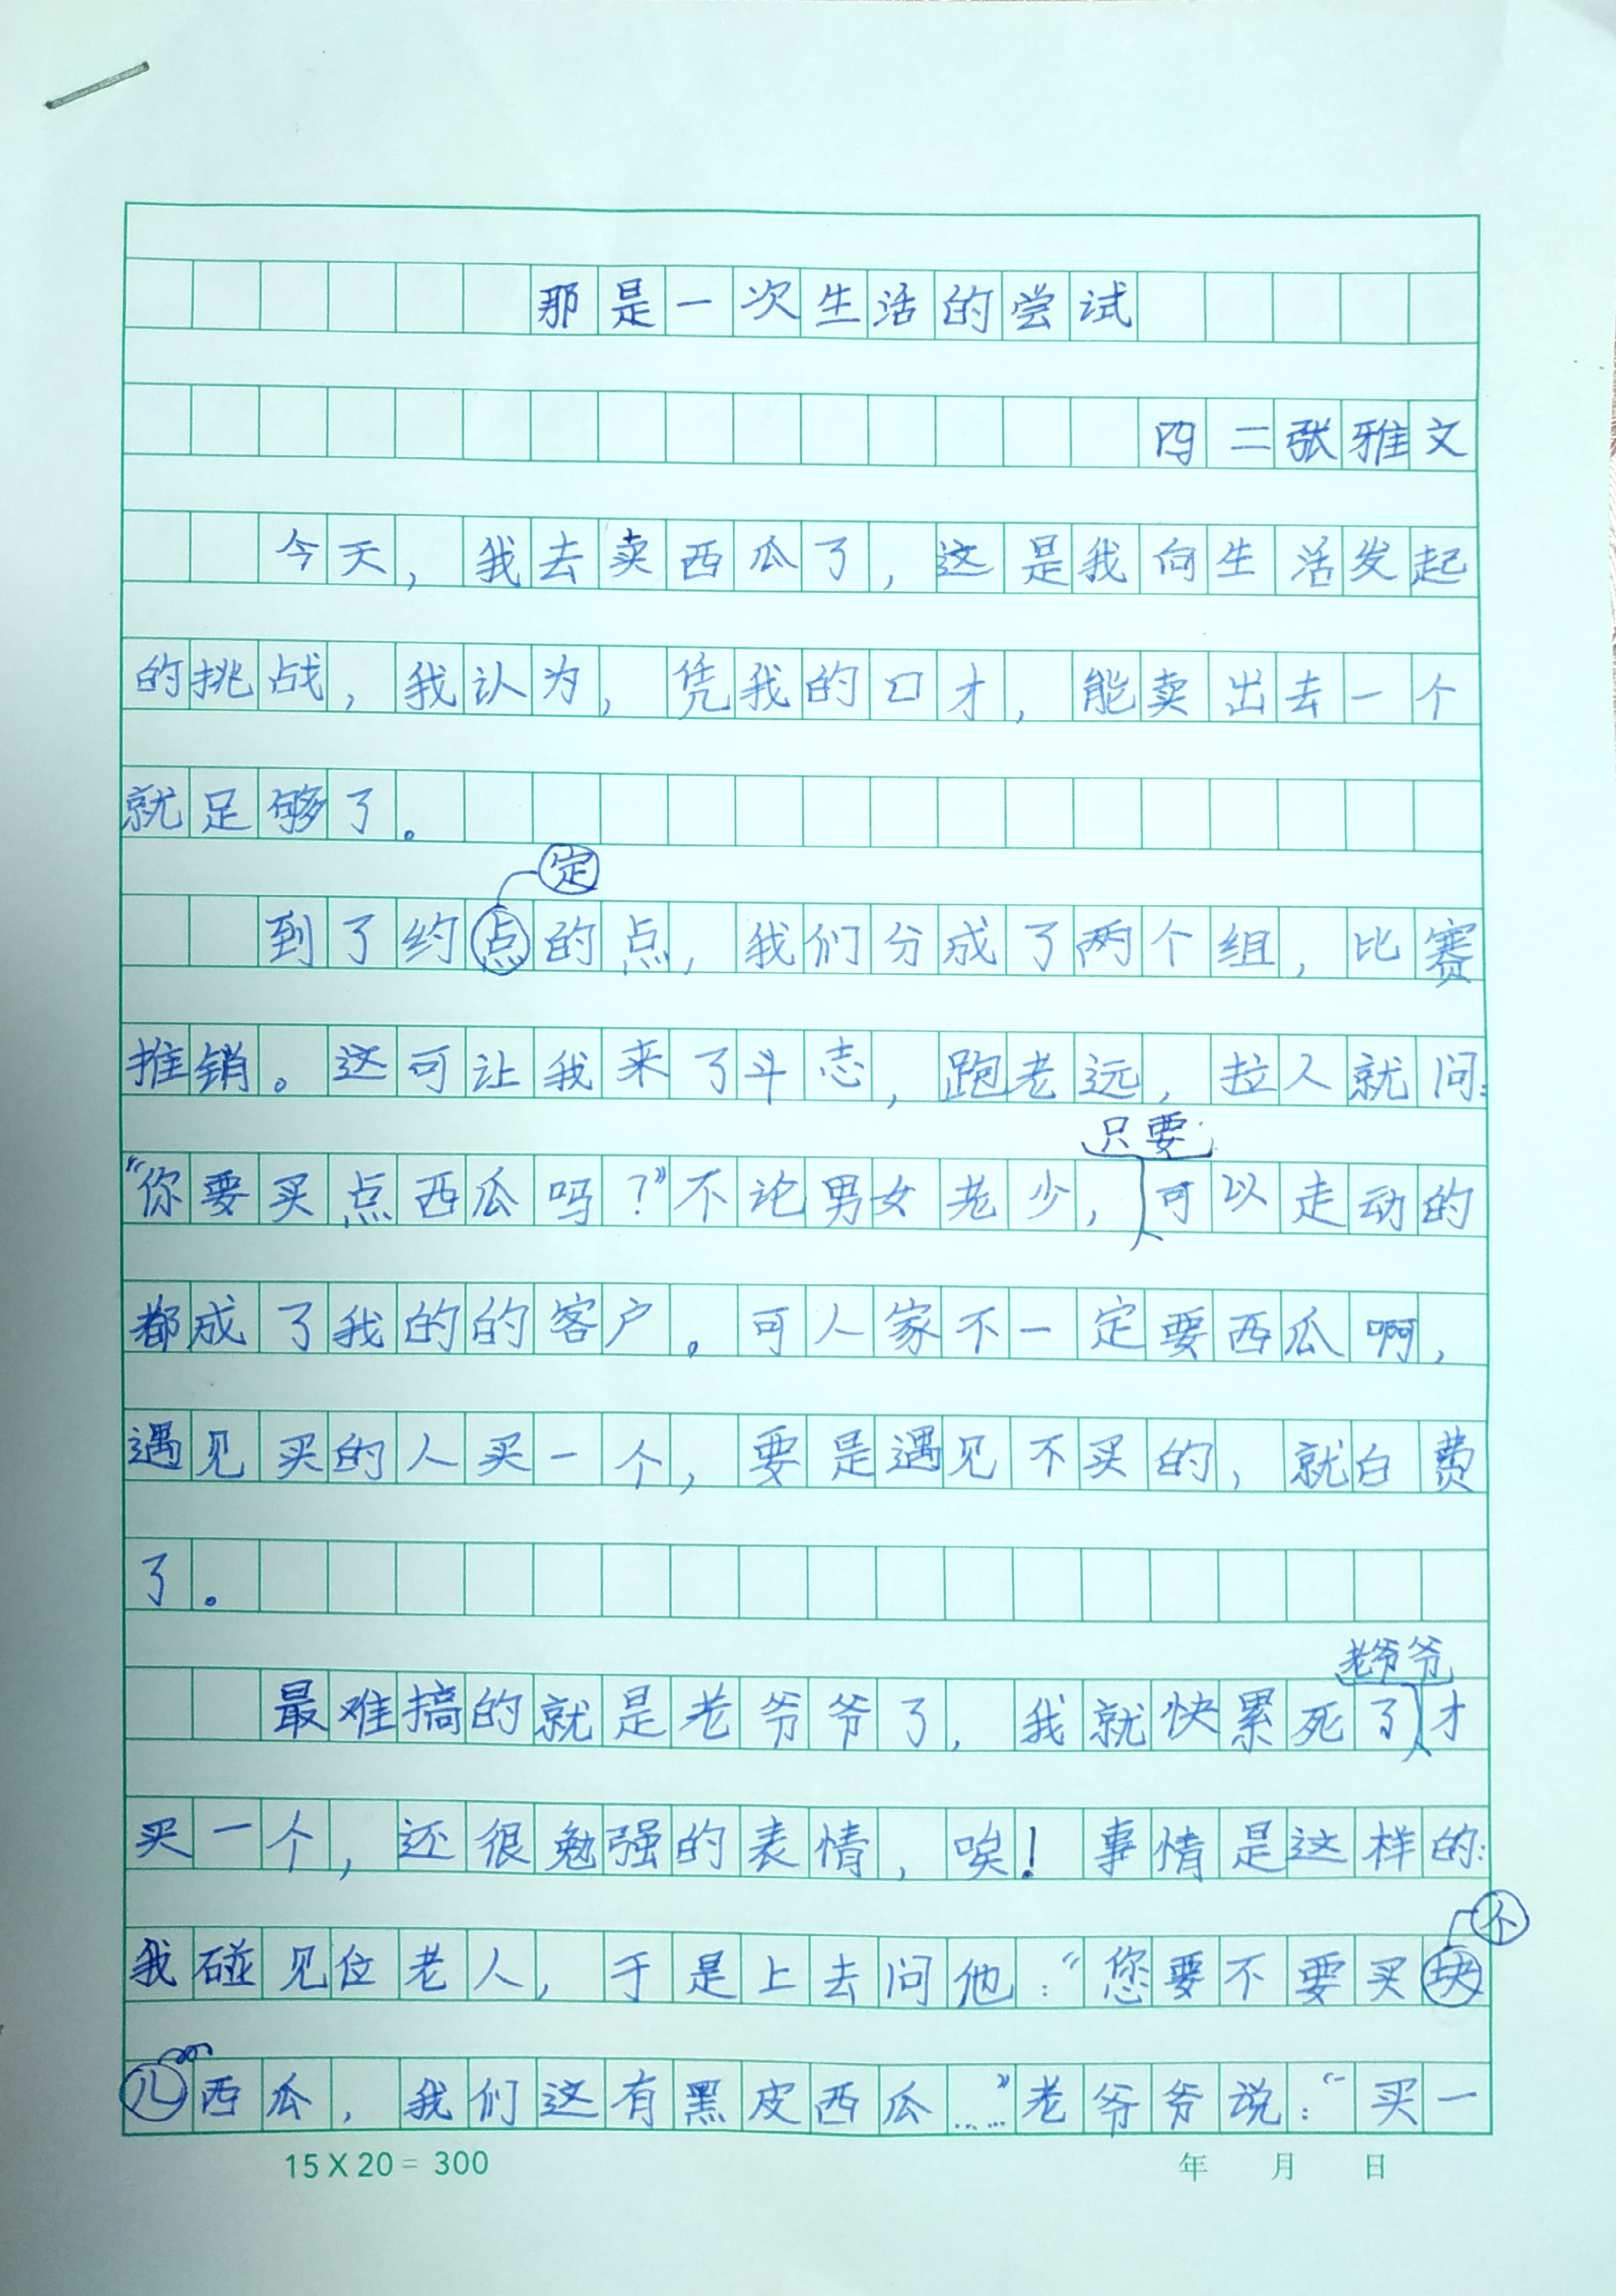 那是一次生活的尝试
四二张雅文
今天，我去卖西瓜了，这是我向生活发起
的挑战，我认为，凭我的口才，能卖出去一个
就足够了。
定
到了约点的点，我们分成了两个组，比赛
推销。这可让我来了斗志，跑老远，拉人就问：
只要
“你要买点西瓜吗？”不论男女老少，可以走动的
都成了我的的客户。可人家不一定要西瓜啊，
遇见买的人买一个，要是遇见不买的，就白费
了。
老爷爷
最难搞的就是老爷爷了，我就快累死了才
买一个，还很勉强的表情，唉！事情是这样的：
个
我碰见位老人，于是上去问他：“您要不要买块
儿西瓜，我们这有黑皮西瓜……”老爷爷说：“买一
15X20=300 年 月 日